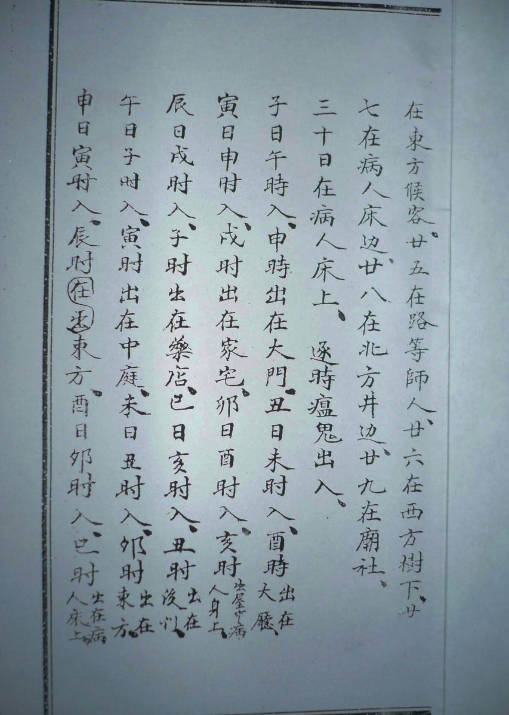 在東方候客、廿五在路等師人、廿六在西方樹下、廿
七在病人床边、廿八在北方井边、廿九在廟社、
三十日在病人床上、逐時瘟鬼出入、
子日午時入、申時出在大門、丑日未时入、酉時出在大廳、
寅日申时入、戌时出在家宅、卯日酉时入、亥时出屋宅病人身上、
辰日戌时入、子时出在藥店、巳日亥时入、丑时出在
午日子时入、寅时出在中庭、未日丑时入、卯时出在東方、
申日寅时入、辰时在出東方、酉日卯时入、巳时出在病人床上、